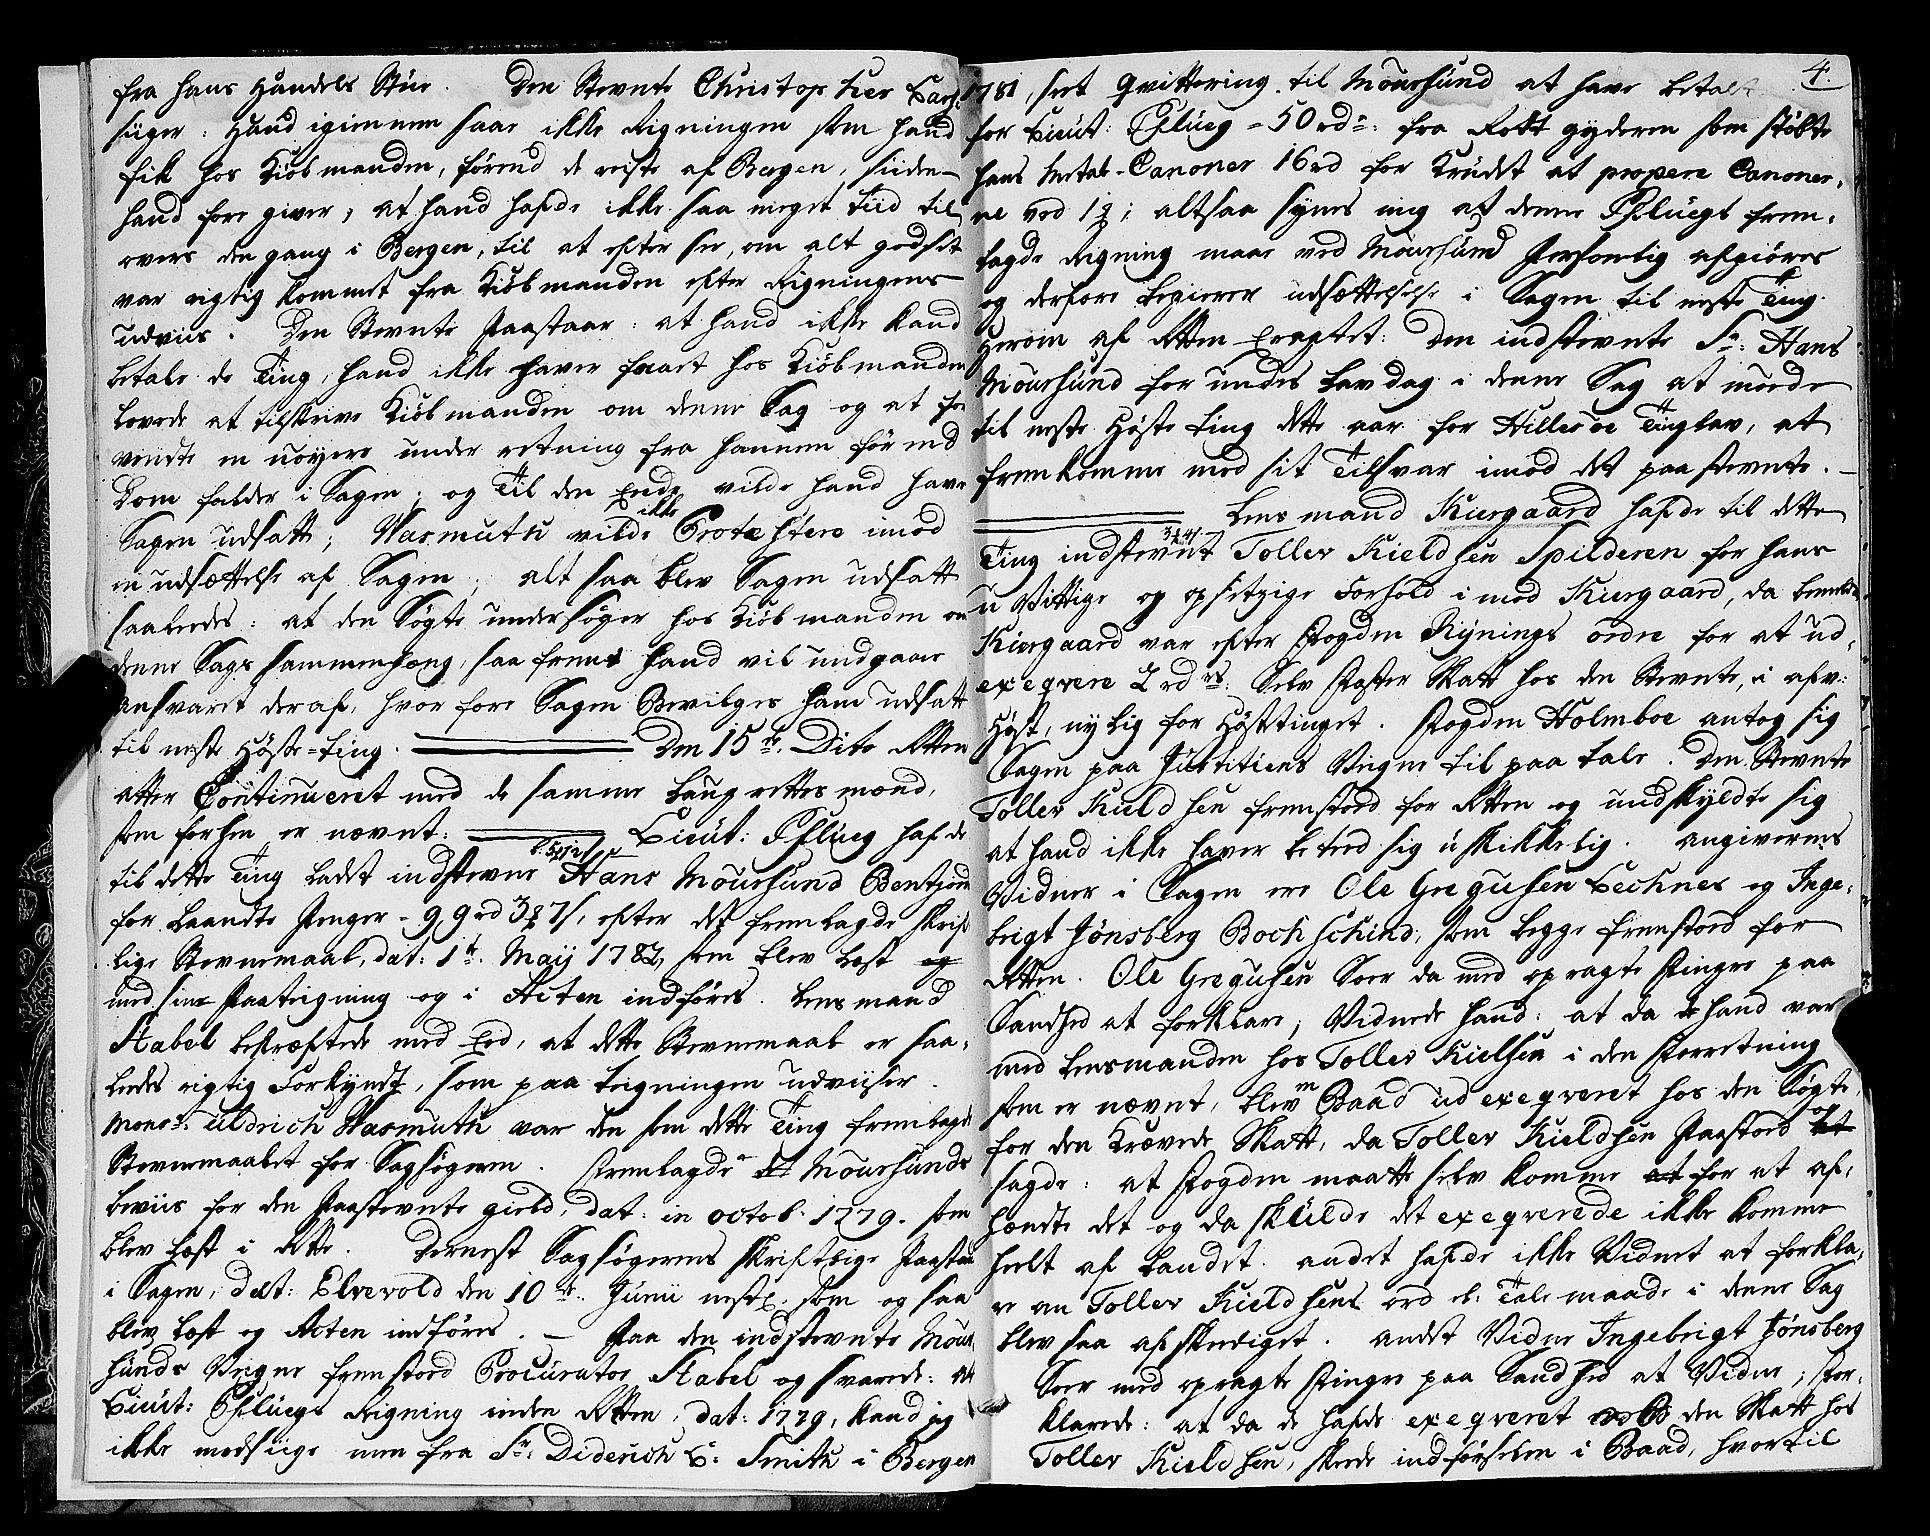 fra hans Handels Stue. Den Stevnte Christopher Lars:
siiger: Hand igiennem saae ikke Rigningen som hand
fik hos Kiøbmanden, førend de reiste af Bergen, siiden
hand fore giver, at hand hafde ikke saa meget tiid til
overs den gang i Bergen, til at efter see, om alt godset
var rigtig kommet fra Kiøbmanden efter Rigningens
udviis. Den Stevnte Paastaar: at hand ikke kand
betale de Ting, hand ikke haver faaet hos Kiøbmanden
lovede at tilskrive Kiøbmanden om denne Sag og at for
vendte en nøyere under retning fra hannem før end
Dom falder i Sagen; og Til den Ende vilde hand have
Sagen udsatt; Wasmuth vilde ikke Protestere imod
en udsættelse af Sagen, alt saa blev Sagen udsatt
saaledes: at den Søgte undersøger hos Kiøbmanden om
denne Sags sammenhæng, saa fremt hand vil undgaae
Ansvaret deraf, hvor fore Sagen Bevilges ham udsatt
til neste Høste-Ting. Den 15de Dito Retten
atter Continueret med de samme Laugrettesmænd,
som forhen er nævnt: Lieut: Pflueg hafde
til dette Ting ladet indstevne Hans Moursund Bentjord
for Laante Penger - 99 rd 3 7 s, efter det fremlagde skrift
lige Stevnemaal, dat: 1te May 1782, som blev Læst og
med sine Paateigning og i Acten indføres. Lensmand
Stabel bekræftede med Eed, at dette Stevnemaal er saa-
ledes rigtig Forkyndt, som paa teigningen udviiser.
Monsr: Uldrich Wasmuth var den som dette Ting fremlagde
Stevnemaalet for Sagsøgeren. Fremlagde Moursunds
beviis for den Paastevnte gield, dat: in octob: 1779. som
blev Læst i Rette. Dernest Sagsøgerens skriftlige Paastand
i Sagen, dat: Elvevold den 10de Junii nestl: som og saa
blev Læst og Acten indføres. - Paa den indstevnte Mour-
sunds Vegne fremstoed Procurator Stabel og svarede: at
Lieut: Pfluegs Rigning inden Retten, dat: 1779, kand jeg
ikke modsiige men fra Sr: Diderich L: Smith i Bergen
4.
1781, seet Qvittering til Moursund at have betalt
for Lieut: Pflueg - 50 rdr: fra Rottgyderen som støbte
hans Metal-Canoner 16 rd for Krudet at propere Canoner-
ne ved; altsaa synes mig at denne Pfluegs frem-
lagde Rigning maae ved Moursund Personlig afgiøres
og derfore begierer udsættelse i Sagen til neste Ting.
Herom af Retten Eragtet: Den indstevnte Sr: Hans
Moursund for undes Lavdag i denne Sag at møde
til neste Høste ting dette aar for Hillesøe Tinglav, at
fremkomme med sit Tilsvar imod det paa stevnte. -
Lensmand Kiergaard hafde til dette
Ting indstevnt Toller Kieldsen Spilderen for hans
uVittige og opsetzige Forhold imod Kiergaard, da bemeldte
Kiergaard var efter Fogden Rynings ordre for at ud-
exeqvere 2 rdrs: Sølv Poster Skatt hos den Stevnte, i afv:
Høst, nylig for Høsttinget. Fogden Holmboe antog sig
Sagen paa Justitiens Vegne til paa tale. Den Stevnte
Toller Kieldsen fremstoed for Retten og undskyldte sig
at hand ikke haver beteed sig uskikkelig. angiverens
Vidner i Sagen ere Ole Gregusen Lechnes og Inge-
brigt Jønsberg Bochschind, som begge fremstoed for
Retten. Ole Gregusen Soer da med opragte Finger paa
Sandhed at forklare; Vidnede hand: at da hand var
med Lensmanden hos Toller Kielsen i den Forretning
som er nævnt, blev en Baad udexeqveret hos den Søgte
for den Krævede Skatt, da Toller Kieldsen Paastod og
sagde: at Fogden maatte selv komme for at af-
hændte det og da skulde det exeqverede ikke komme
heelt af Landet. andet hafde ikke Vidnet at forkla-
re om Toller Kieldsens ord el: Talemaade i denne Sag
blev saa afskediget. andet Vidne Ingebrigt Jønsberg
Soer med opragte Finger paa Sandhed at Vidne, for-
klarede: at da de hafde exeqveret den Skatt hos
Toller Kieldsen, skede indførselen i Baad, hvortil